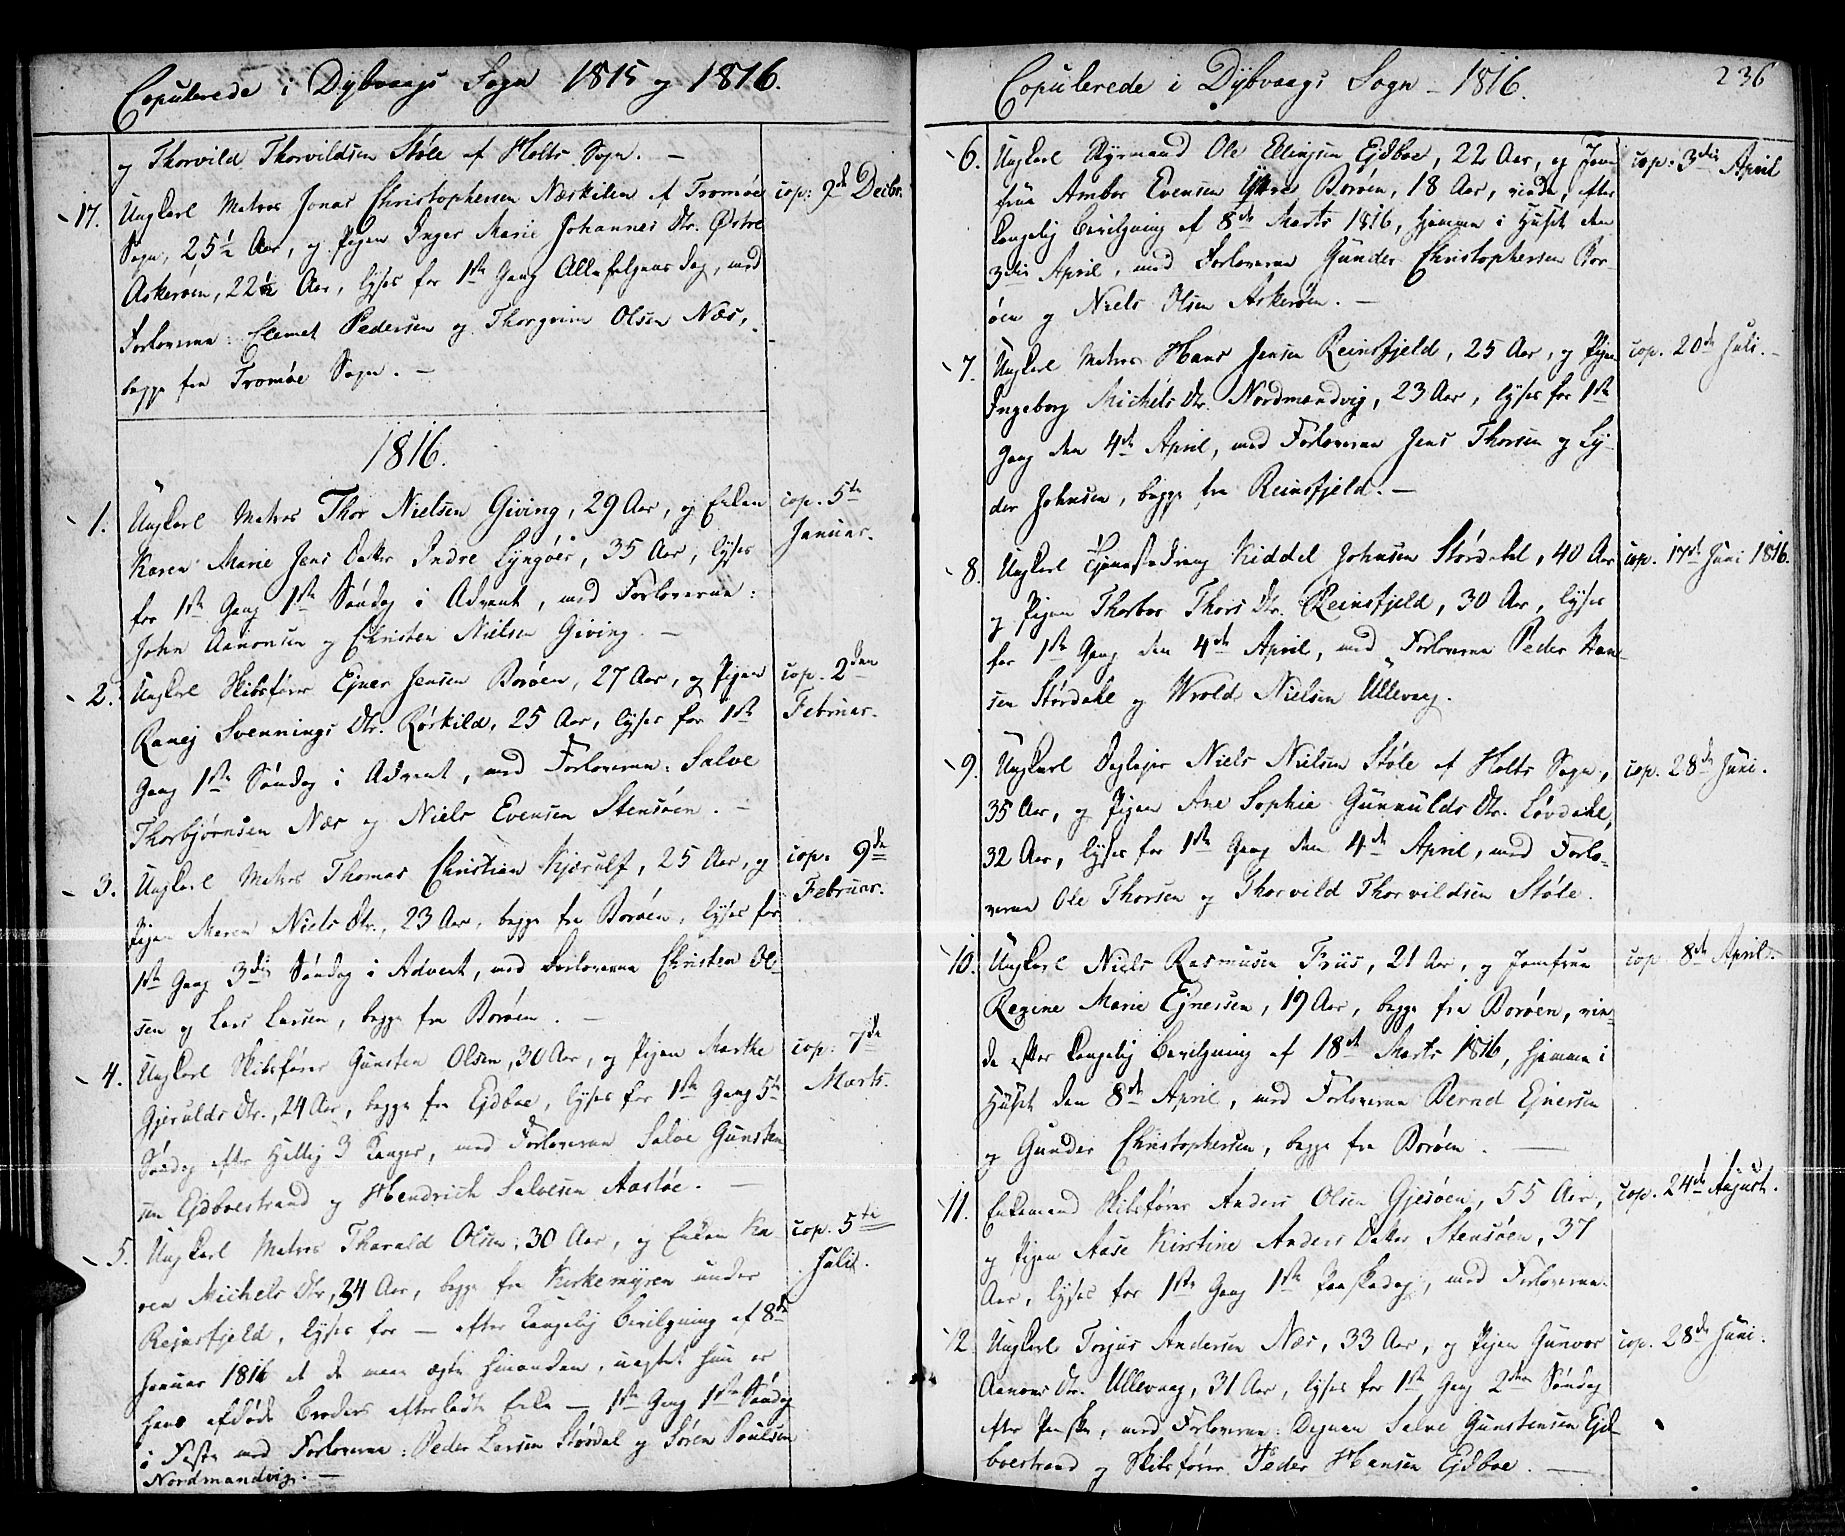 Copulerede i Dybvaags Sogn 1815 og 1816.
og Thorvild Thorvildsen Støle af Holts Sogn. —
17. Ungkarl Matros Jonas Christophersen Næskilen af Tromøe cop: 2de Decbr.
Sogn, 25½ Aar, og Pigen Inger Marie Johannes Dtr. Østre
Askerøen, 22½ Aar, lyses for 1ste Gang Allehelgens dag, med
Forloverne: Clemet Pedersen og Thorgrim Olsen Næs,
begge fra Tromøe Sogn. —
1816.
1. Ungkarl Matros Thor Nielsen Giving, 29 Aar, og Enken cop. 5te
Karen Marie Jens Datter Indre Lyngøer, 35 Aar, lyses Januar.
for 1ste Gang 1ste Søndag i Advent, med Forloverne:
John Aanonsen og Christen Nielsen Giving. —
2. Ungkarl Skibsfører Ejner Jensen Borøen, 27 Aar, og Pigen cop. 2den
Ranej Svennings Dtr. Rørkild, 25 Aar, lyses for 1ste Februar.
Gang 1ste Søndag i Advent, med Forloverne: Salve
Thorbjørnsen Næs og Niels Evensen Stensøen. —
3. Ungkarl Matros Thomas Christian Kjærulf, 25 Aar, og cop. 9de
Pigen Maren Niels Dtr., 23 Aar, begge fra Borøen, lyses for Februar.
1ste Gang 3die Søndag i Advent, med Forloverne Christen Ol-
sen og Lars Larsen, begge fra Borøen. —
4. Ungkarl Skibsfører Gunsten Olsen, 30 Aar, og Pigen Marthe cop. 7de
Gjerulds Dtr., 24 Aar, begge fra Ejdboe, lyses for 1ste Gang 5te Marts.
Søndag efter Hellig 3 Konger, med Forloverne Salve Gunsten-
sen Ejdboestrand og Hendrich Salvesen Aastøe. —
5. Ungkarl Matros Tharald Olsen, 30 Aar, og Enken Ka cop. 5te
ren Michels Dtr, 34 Aar, begge fra Kirkemyren under Juli.
Rejnsfjeld, lyses for — efter Kongelig Bevilgning af 8de
Januar 1816 at de maa ægte hinanden, uagtet hun er
hans afdøde Broders efterladte Enke — 1ste Gang 1ste Søndag
i Faste med Forloverne: Peder Larsen Størdal og Søren Poulsen
Nordmandvig. —
Copulerede i Dybvaags Sogn — 1816. 236
6. Ungkarl Styrmand Ole Ellingsen Ejdboe, 22 Aar, og Jom cop. 3die April
frue Ambor Evensen Ytre Borøen, 18 Aar, viede, efter
Kongelig Bevilgning af 8de Marts 1816, hjemme i Huset den
3die April, med Forloverne Gunder Christophersen Bor-
øen og Niels Olsen Askerøen. —
7. Ungkarl Matros Hans Jensen Reinsfjeld, 25 Aar, og Pigen cop. 20de Juli. —
Ingeborg Michels Dtr. Nordmandvig, 23 Aar, lyses for 1ste
Gang den 4de April, med Forloverne Jens Thorsen og Ly-
der Johnsen, begge fra Reinsfjeld. —
8. Ungkarl Tjenestedreng Kiddel Johnsen Størdahl, 40 Aar cop. 17de Juni 1816.
og Pigen Thorbor Thors Dtr. Reinsfjeld, 30 Aar, lyses
for 1ste Gang den 4de April, med Forloverne Peder Han-
sen Størdahl og Wrold Nielsen Ullevaag.
9. Ungkarl Niels Nielsen Støle af Holts Sogn, cop. 28de Juni.
35 Aar, og Pigen Ane Sophie Gunnulds Dtr. Løvdahl,
32 Aar, lyses for 1ste Gang den 4de April, med Forlo-
verne Ole Thorsen og Thorvild Thorvildsen Støle.
10. Ungkarl Niels Rasmusen Friis, 21 Aar, og Jomfrue cop. 8de April.
Regine Marie Ejnersen, 19 Aar, begge fra Borøen, vie-
de efter Kongelig Bevilgning af 18de Marts 1816, hjemme i
Huset den 8de April, med Forloverne Bernd Ejnersen
og Gunder Christophersen, begge fra Borøen. —
11. Enkemand Skibsfører Anders Olsen Gjesøen, 55 Aar, cop. 24de August.
og Pigen Aase Kirstine Anders Datter Stensøen, 37
Aar, lyses for 1ste Gang 1ste Paaskedag, med Forloverne.
12. Ungkarl Torjus Andersen Næs, 33 Aar, og Pigen Gunvor cop. 28de Juni.
Aanons Dtr. Ullevaag, 31 Aar, lyses for 1ste Gang 2den Søndag
efter Paaske, med Forloverne: Degnen Salve Gunstensen Ejd-
boestrand og Skibsfører Peder Hansen Ejdboe. —